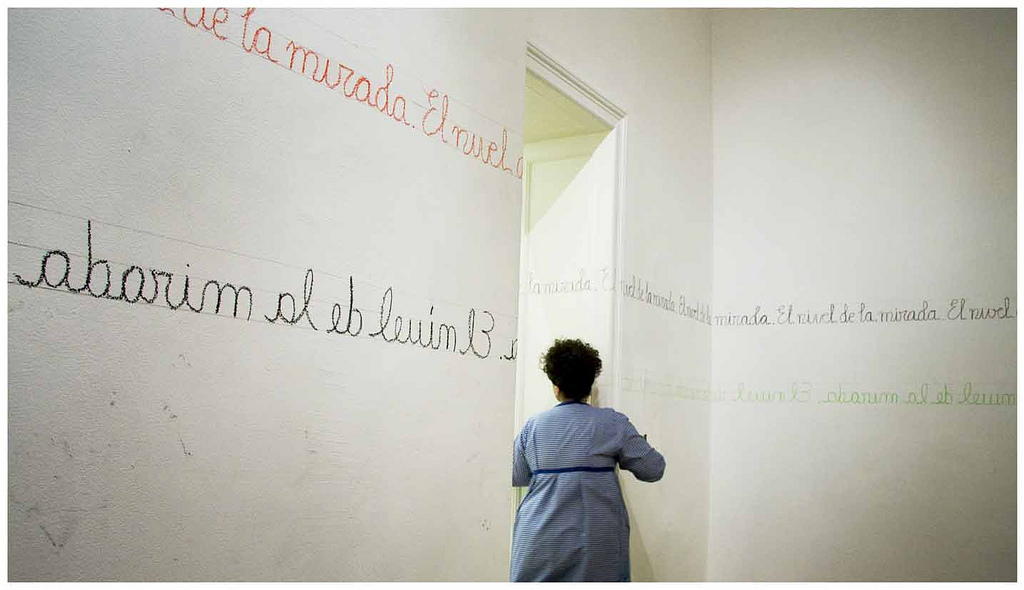 de la mirada. El nivel
abarim al eb levin lƎ.
la mirada. El nivel de la mirada. El nivel de la mirada. El nivel de la mirada. El nivel
levin lƎ. abarim al eb levin